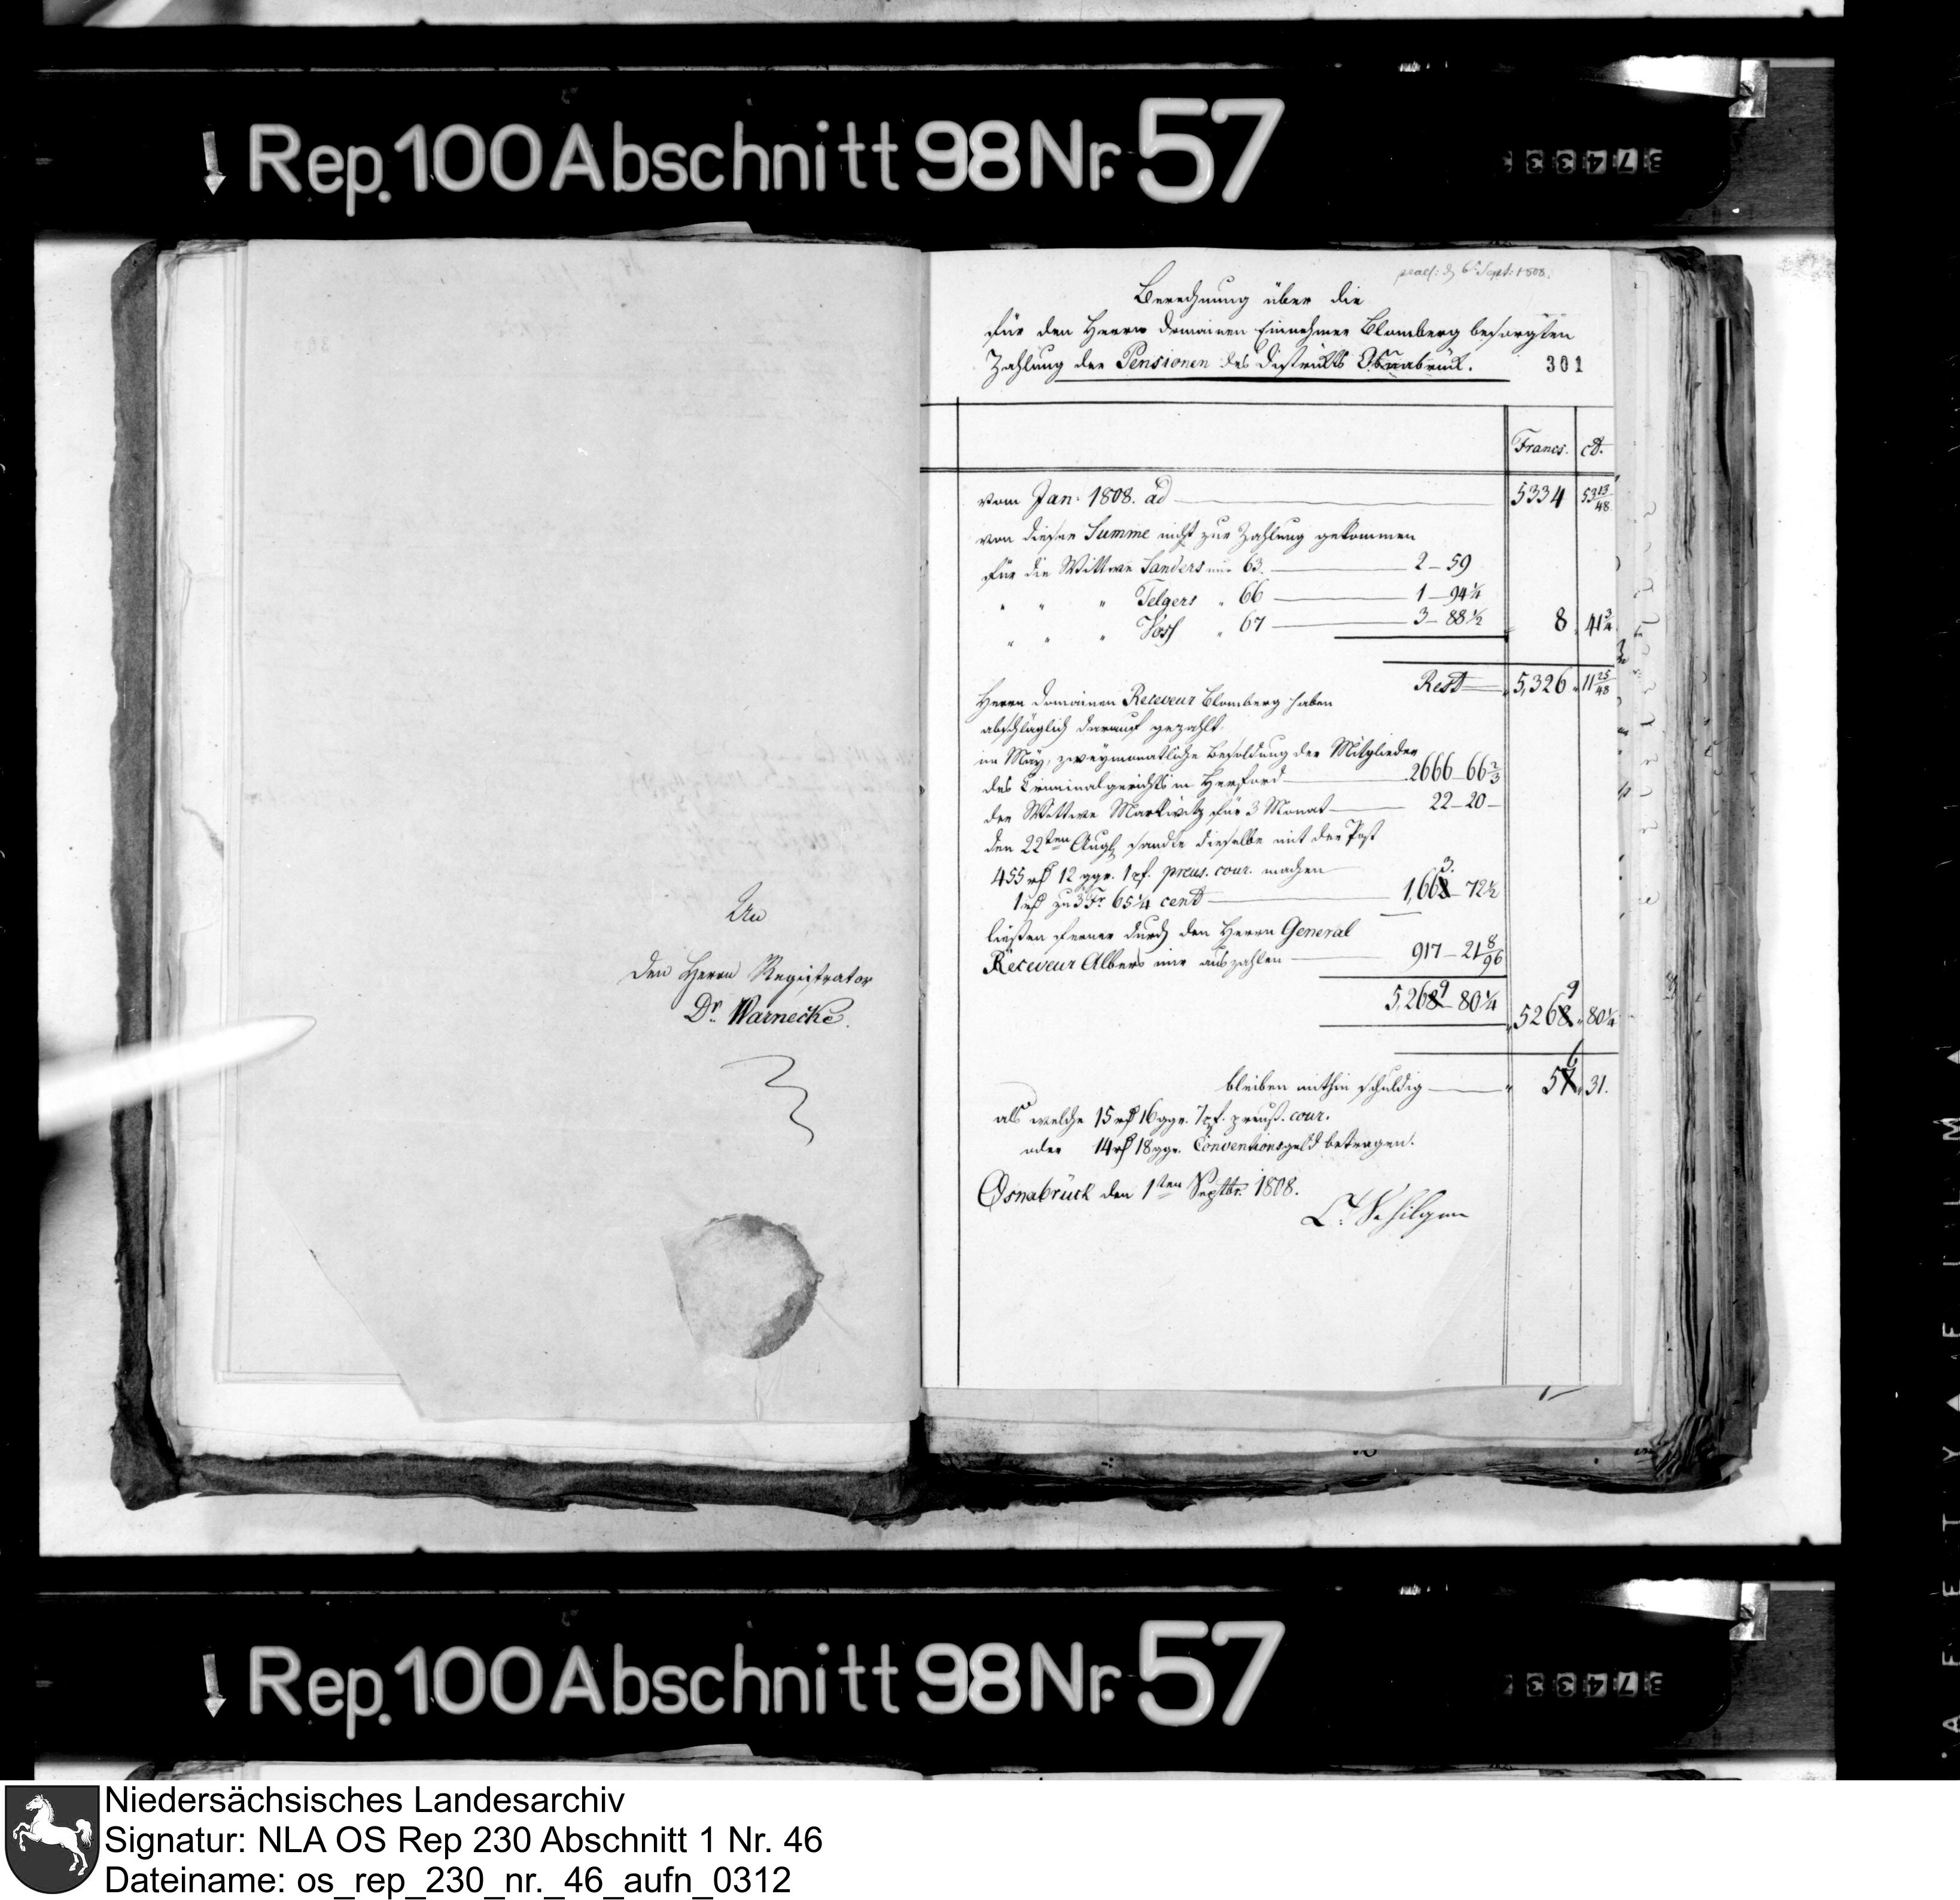 Rep. 100 Abschnitt 98 Nr. 57
37433
An
den Herrn Registrator
Dr. Warnecke.
praes: d. 6t Sept: 1808.
Berechnung über die
für den Herrn Domainen Einnehmer Blomberg besorgten
Zahlung der Pensionen des Districkts Osnabrück.
301
Francs. ct.
vom Jan: 1808. ad 5334 53 13/48
von dieser Summe nicht zur Zahlung gekommen
für die Wittwe Sanders nro 63. 2 - 59
" " " Telgers " 66 1 - 94 1/4
" " " Voss " 67 3 - 88 1/2 8 41 3/4
Rest 5,326 11 25/48
Herrn Domainen Receveur Blomberg haben
abschläglich darauf gezahlt
im May, zweymonatliche Besoldung der Mitglieder
des Criminalgerichts in Herford 2666 - 66 2/3
der Wittwe Markwitz für 3 Monat 22 - 20 -
den 22ten Augt, sandte dieselbe mit der Post
455 rt 12 ggr. 1 pf. preus. cour. machen
1 rt zu 3 Fr. 65 1/4 cent 1,663 - 72 1/2
ließen ferner durch den Herrn General
Receveur Albers mir auszahlen 917 - 21 8/96
5,269 - 80 1/4 5269 80 1/4
bleiben mithin schuldig 56 31.
als welche 15 rt 16 ggr. 7 pf. preuß. cour.
oder 14 rt 18 ggr. Conventionsgeld betragen.
Osnabrück den 1ten Septbr. 1808.
Rep. 100 Abschnitt 98 Nr. 57
37433
Niedersächsisches Landesarchiv
Signatur: NLA OS Rep 230 Abschnitt 1 Nr. 46
Dateiname: os_rep_230_nr._46_aufn_0312